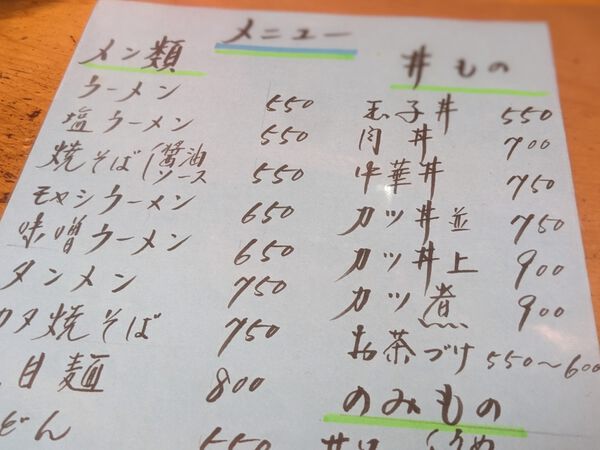 メニュー
メン類
ラーメン 550
塩ラーメン 550
焼そば(醤油 ソース 550
モヤシラーメン 650
味噌ラーメン 650
タンメン 750
カタ焼そば 750
目麺 800
どん 550
丼もの
玉子丼 550
肉丼 700
中華丼 750
カツ丼並 750
カツ丼上 900
カツ煮 900
お茶づけ 550〜600
のみもの